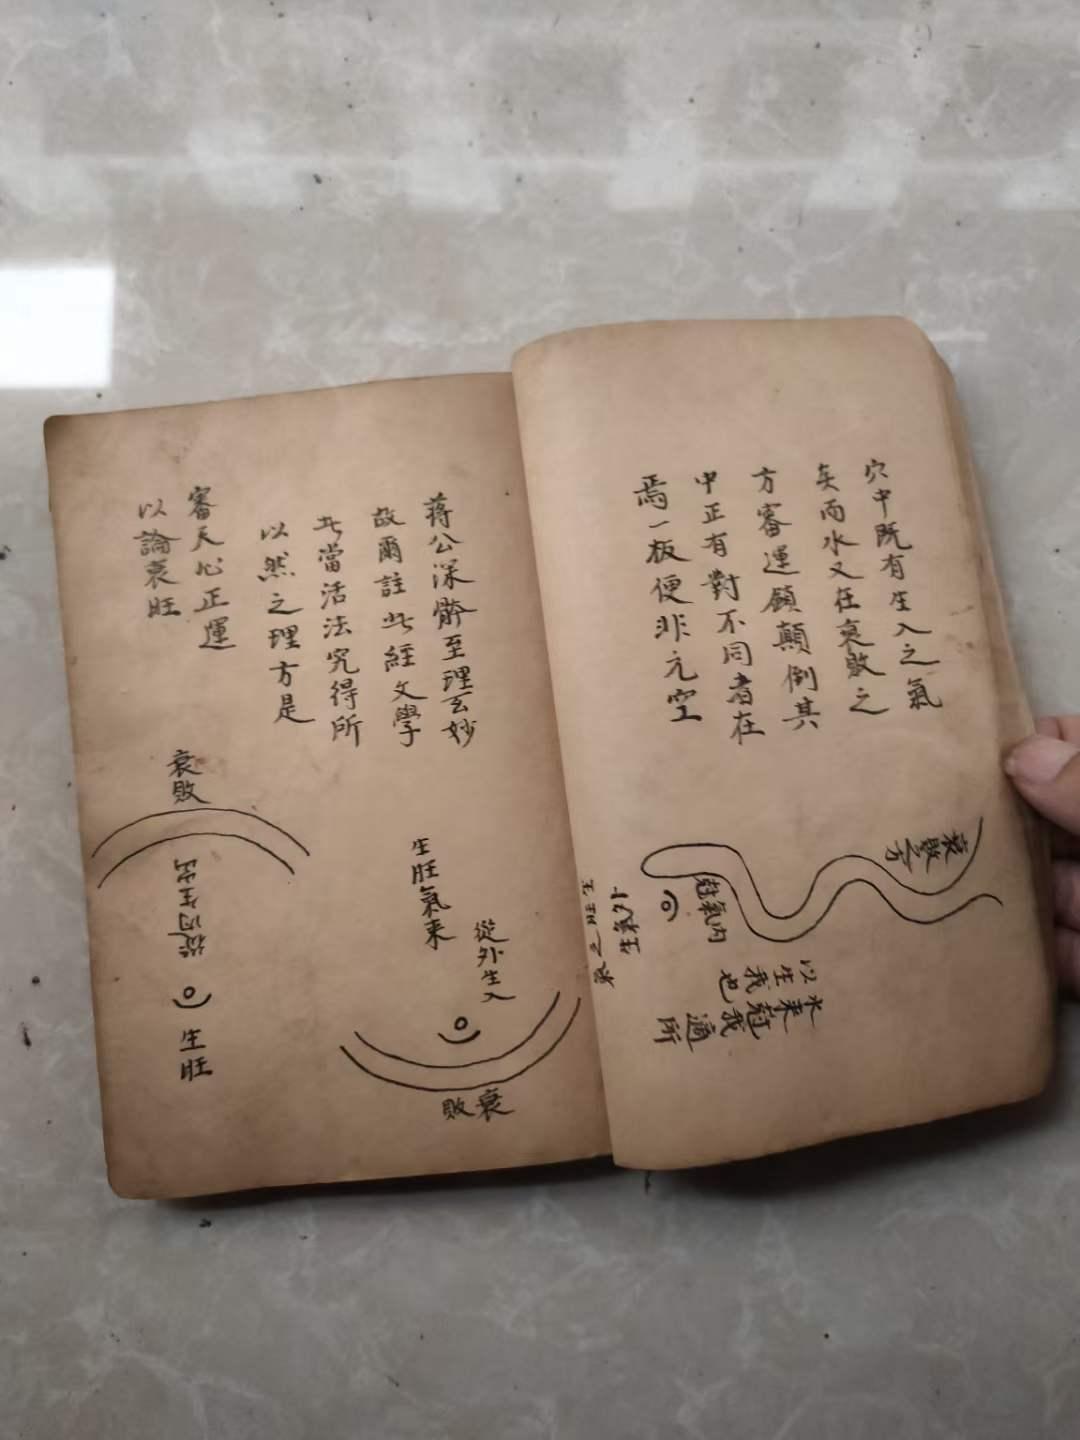 穴中既有生入之氣
矣而水又在衰敗之
方審運顛顛倒其
中正有對不同者在
焉一板便非元空
衰敗之方
尅氣內
外氣生
生旺之氣
水来尅我適所
以生我也
蔣公深髒至理玄妙
故爾註此經文學
此當活法究得所
以然之理方是
審天心正運
以論衰旺
生旺氣来
從外生入
衰敗
衰敗
從內生出
生旺